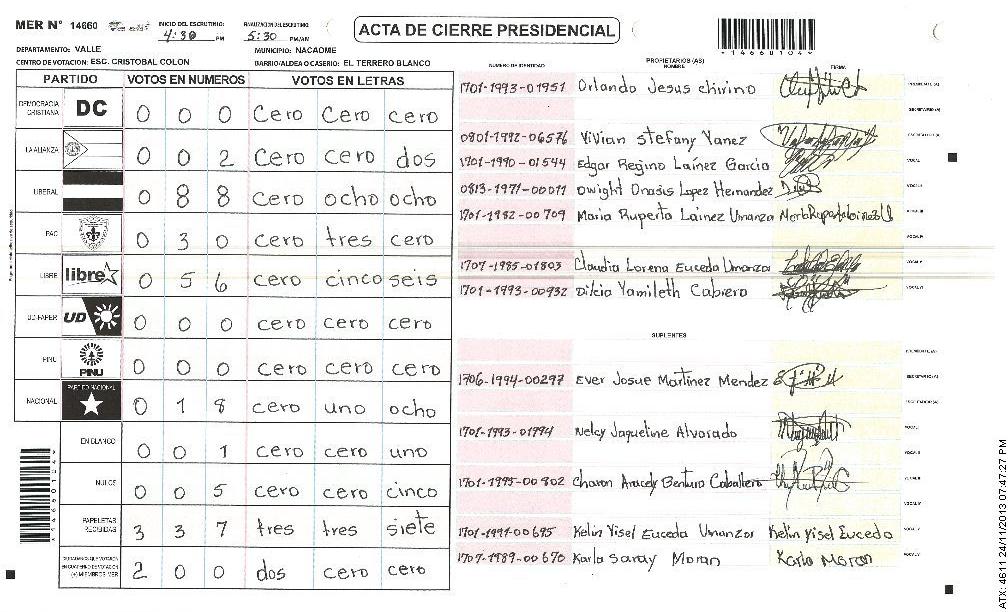 MER N° 14660 INICIO DEL ESCRUTINIO 4:30 PM FINALIZACION DEL ESCRUTINIO 5:30 PM/AM
ACTA DE CIERRE PRESIDENCIAL
*14660104*
DEPARTAMENTO: VALLE MUNICIPIO: NACAOME
CENTRO DE VOTACION: ESC. CRISTOBAL COLON BARRIO/ALDEA O CASERIO: EL TERRERO BLANCO
PARTIDO VOTOS EN NUMEROS VOTOS EN LETRAS
DEMOCRACIA CRISTIANA DC 0 0 0 Cero Cero cero
LA ALIANZA 0 0 2 Cero cero dos
LIBERAL 0 8 8 Cero ocho ocho
PAC 0 3 0 cero tres cero
LIBRE libre 0 5 6 cero cinco seis
UD-FAPER UD 0 0 0 cero cero cero
PINU PINU 0 0 0 cero cero cero
NACIONAL PARTIDO NACIONAL 0 1 8 cero uno ocho
EN BLANCO 0 0 1 cero cero uno
NULOS 0 0 5 cero cero cinco
PAPELETAS RECIBIDAS 3 3 7 tres tres siete
CIUDADANOS QUE VOTARON EN CUADERNO DE VOTACION (+) MIEMBROS MER 2 0 0 dos cero cero
*14660104*
PROPIETARIOS (AS)
NUMERO DE IDENTIDAD NOMBRE FIRMA
1701-1993-01951 Orlando Jesus chirino PRESIDENTE (A)
SECRETARIO (A)
0801-1992-06576 Vivian stefany Yanez ESCRUTADOR (A)
1701-1990-01544 Edgar Regino Laínez Garcia VOCAL I
0813-1971-00011 Dwight Onasis Lopez Hernandez VOCAL II
1701-1982-00709 Maria Ruperta Lainez Umanza VOCAL III
VOCAL IV
1707-1985-01803 Claudia Lorena Euceda Umanzor VOCAL V
1701-1993-00932 Dilcia Yamileth Cabrera VOCAL VI
SUPLENTES
PRESIDENTE (A)
1706-1994-00297 Ever Josue Martínez Mendez SECRETARIO (A)
ESCRUTADOR (A)
1701-1993-01994 Nelcy Jaqueline Alvarado VOCAL I
VOCAL II
1701-1995-00802 Charon Aracely Bentura Caballero VOCAL III
VOCAL IV
1701-1991-00695 Kelin Yisel Euceda Umanzor Kelin Yisel Euceda VOCAL V
1707-1989-00670 Karla Saray Moran Karla Moran VOCAL VI
ATX: 4611 24/11/2013 07:47:27 PM